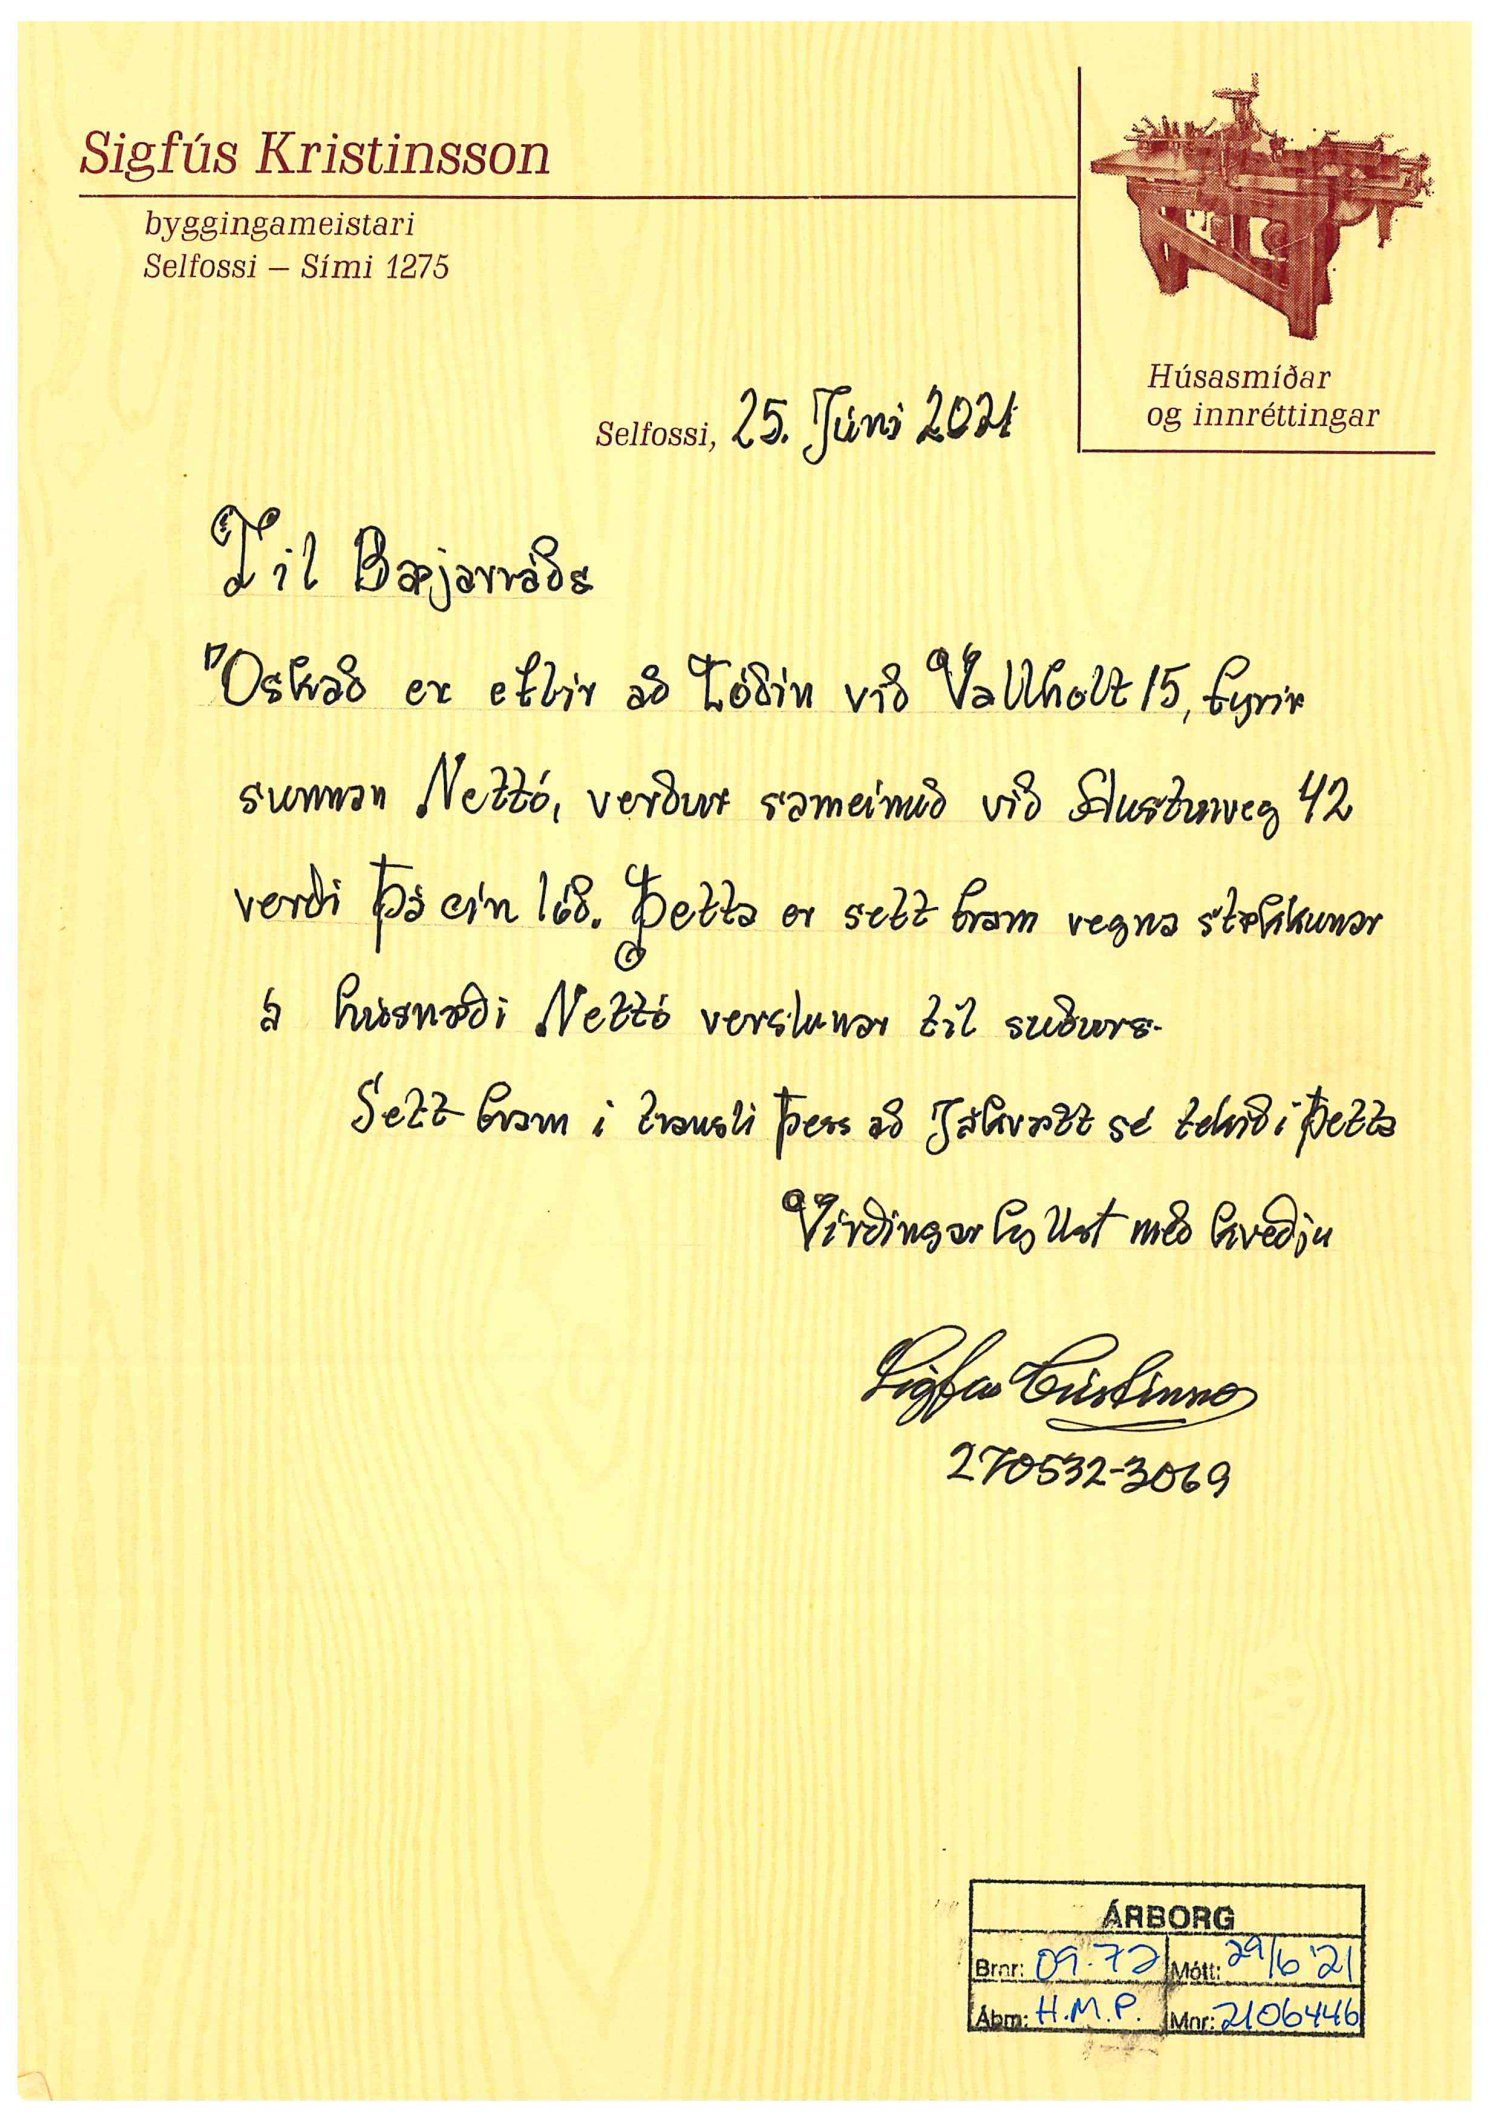 Sigfús Kristinsson
byggingameistari
Selfossi – Sími 1275
Húsasmíðar
og innréttingar
Selfossi, 25. Júní 2021
Til Bæjarráðs
Óskað er eftir að Lóðin við Vallholt 15, fyrir
sunnan Nettó, verður sameinuð við Austurveg 42
verði þá ein lóð. Þetta er sett fram vegna stækkunar
á húsnæði Nettó verslunar til suðurs.
Sett fram í trausti þess að Jákvætt sé tekið í þetta
Virðingarfyllst með kveðju
Sigfús Kristinsson
270532-3069
ÁRBORG
Brnr: 09-72 Mótt: 29/6 '21
Ábm: H.M.P. Mnr: 2106446